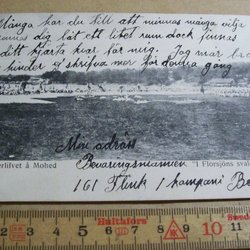 Många har du till att minnas många vilja
minnas dig låt ett litet rum dock finnas
ditt hjerta kvar för mig. Jag mår
hinder skrifva mer för denna gång
erlifvet å Mohed
"I Florsjöns sval
Min adräss
Bevaringsmannen
161 Flink 1 kompani Be
Hultafors
Swede
1 2 3 4 5 6 7 8 9 10 11 12 13